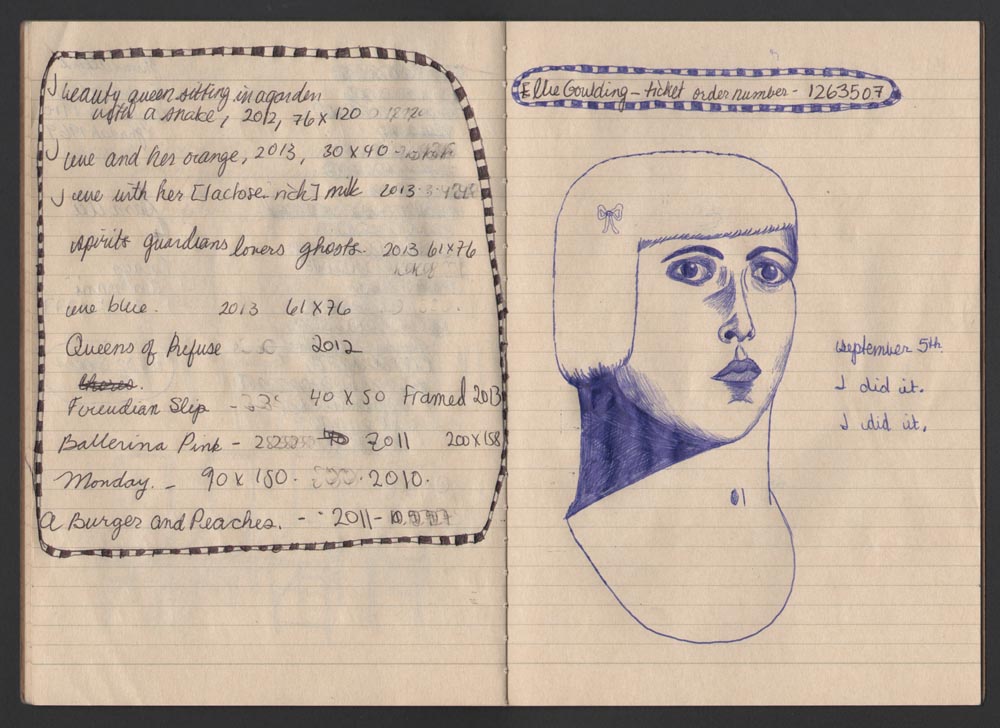 beauty queen sitting in a garden
with a snake, 2012, 76 x 120
eve and her orange, 2013, 30 x 40 -
eve with her [lactose rich] milk 2013
spirits guardians lovers ghosts. 2013. 61 x 76
eve blue. 2013 61 x 76
Queens of Refuse 2012
Chores.
Freudian Slip - 40 x 50 Framed 2013
Ballerina Pink - 2011 200 x 158
Monday. - 90 x 150. 2010.
A Burger and Peaches. - 2011 -
Ellie Goulding - ticket order number - 1263507
september 5th.
I did it.
I did it.